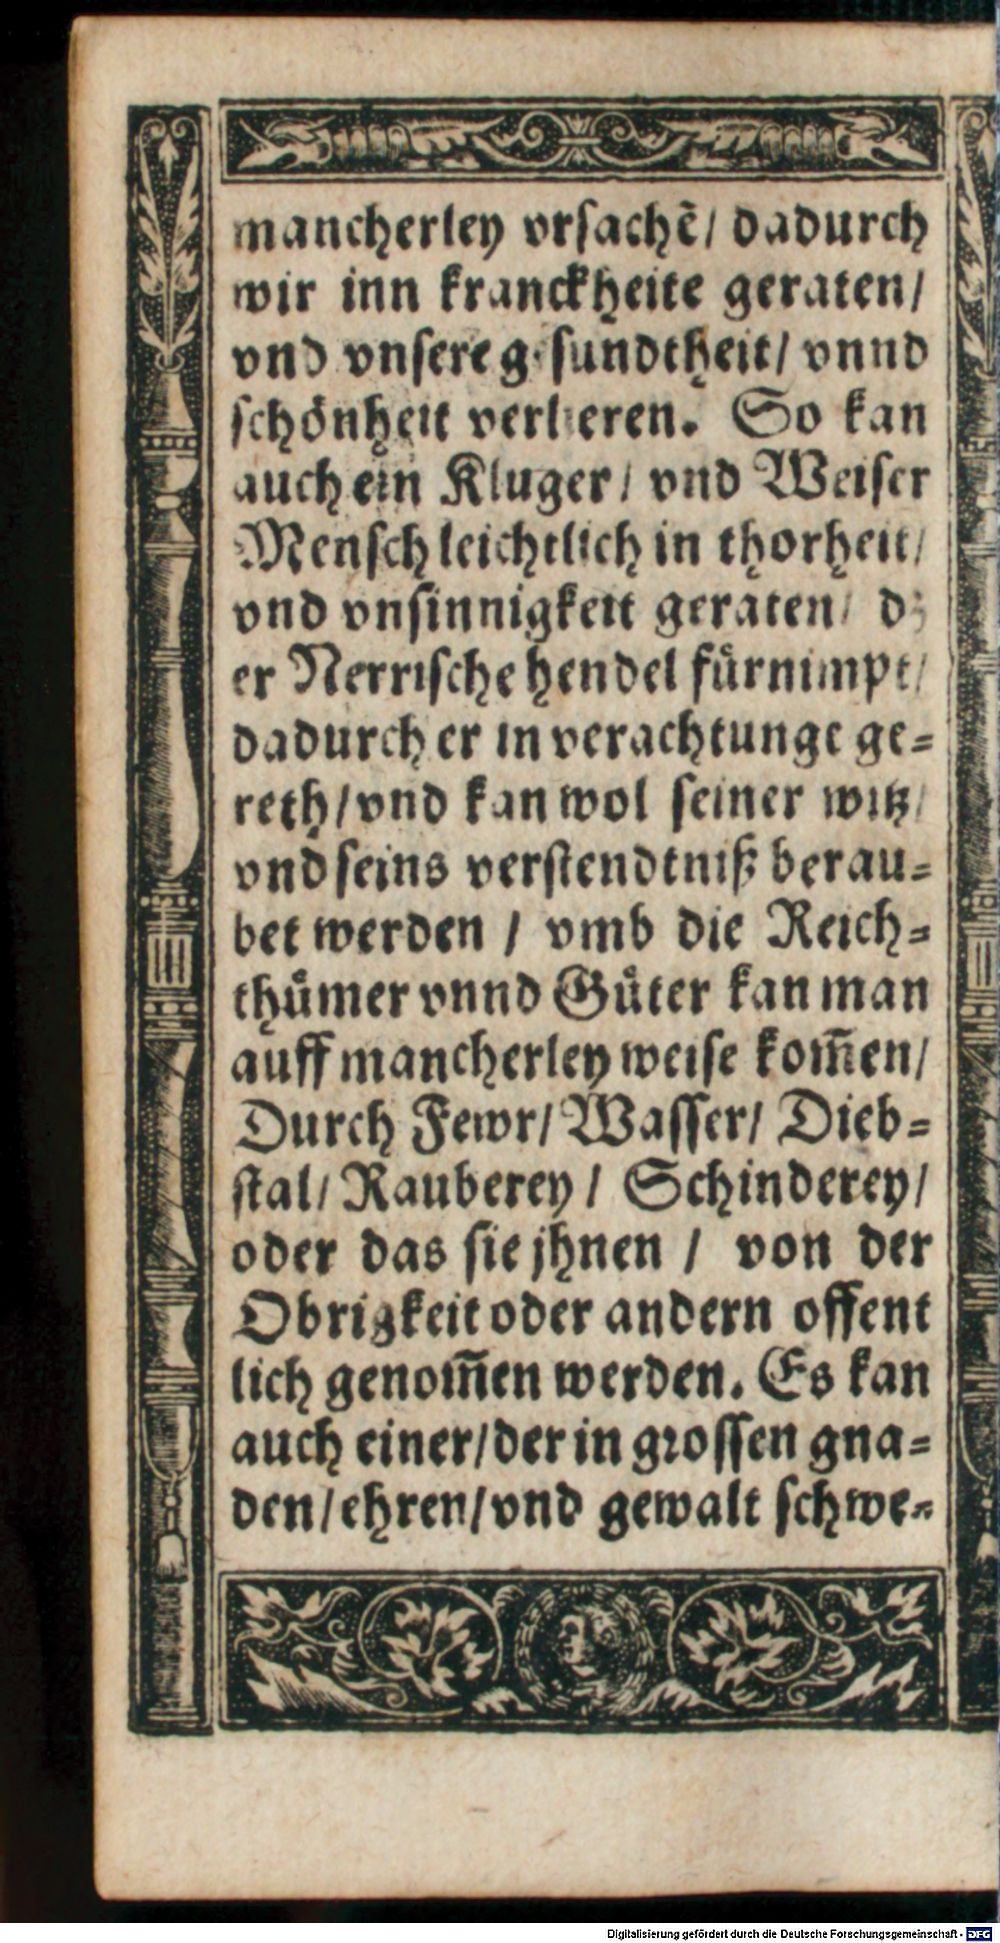 mancherley vrsachẽ/ dadurch
wir inn kranckheite geraten/
vnd vnsere gesundtheit/ vnnd
schönheit verlieren. So kan
auch ein Kluger/ vnd Weiser
Mensch leichtlich in thorheit/
vnd vnsinnigkeit geraten/ dz
er Nerrische hendel fürnimpt/
dadurch er in verachtunge ge=
reth/ vnd kan wol seiner witz/
vnd seins verstendtniß berau=
bet werden / vmb die Reich=
thümer vnnd Güter kan man
auff mancherley weise kom̃en/
Durch Fewr/ Wasser/ Dieb=
stal/ Rauberey/ Schinderey/
oder das sie jhnen / von der
Obrigkeit oder andern offent
lich genom̃en werden. Es kan
auch einer/ der in grossen gna=
den/ ehren/ vnd gewalt schwe=
Digitalisierung gefördert durch die Deutsche Forschungsgemeinschaft - DFG